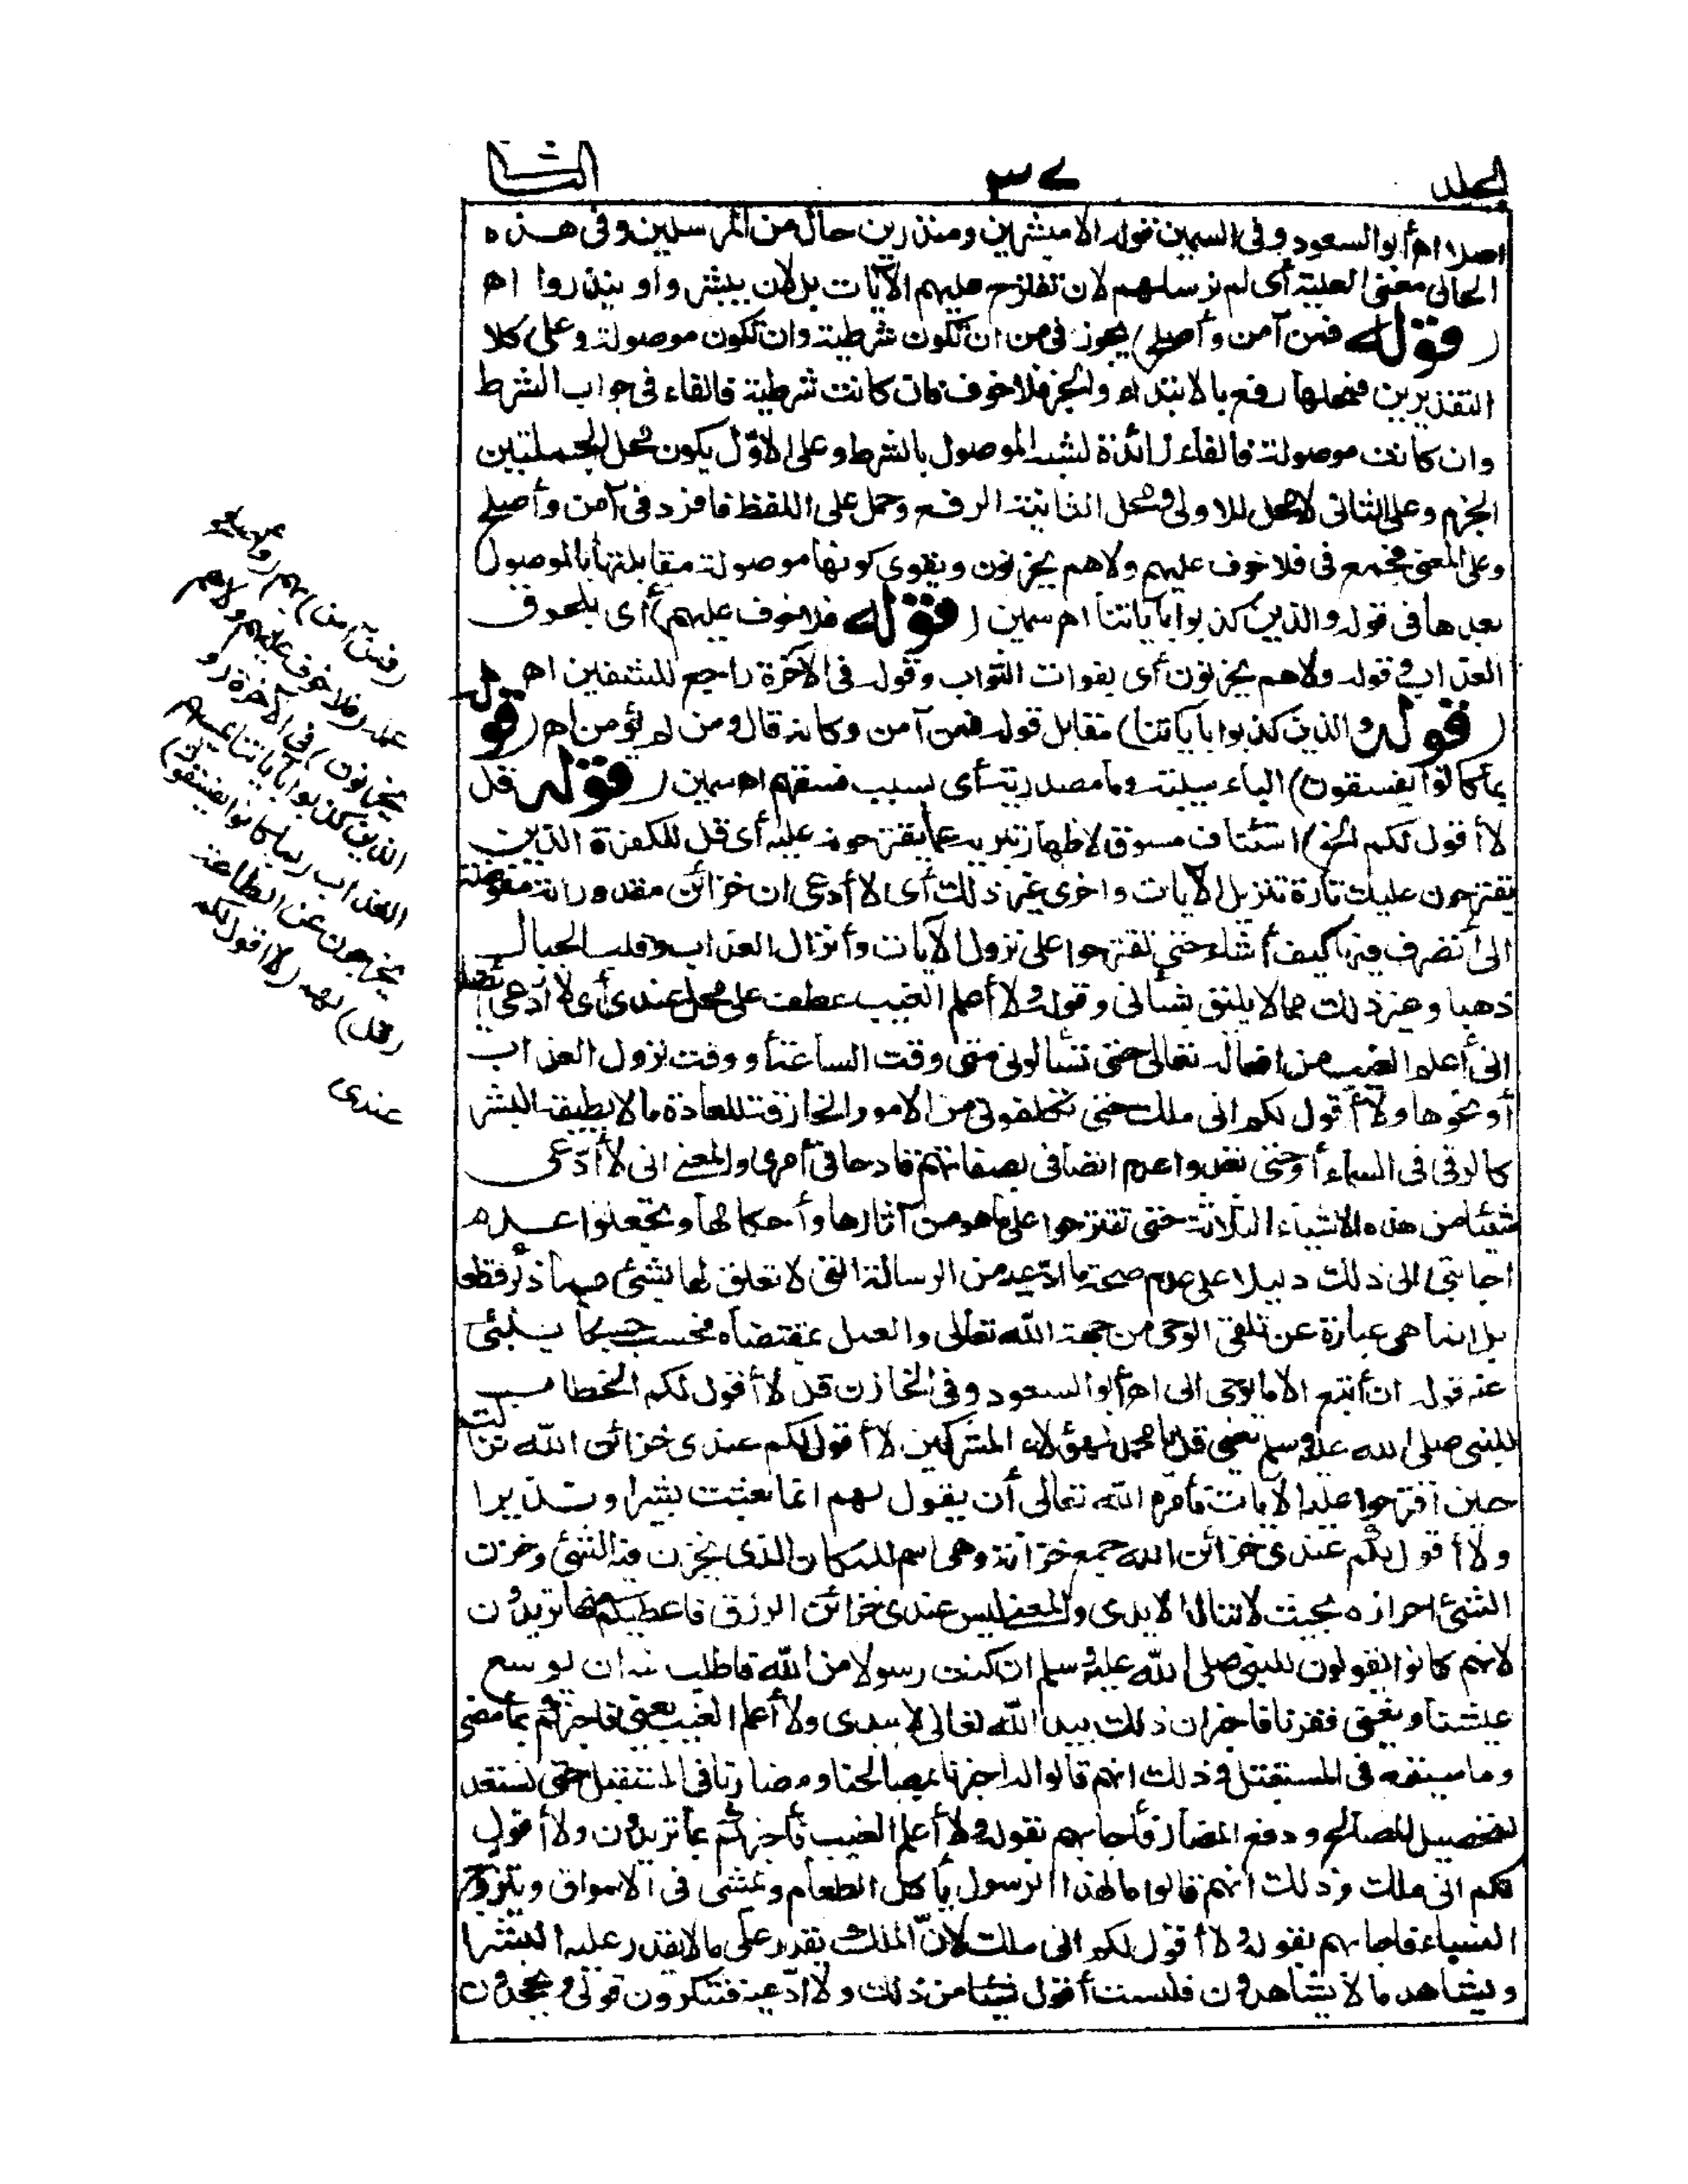 الجلد ٣٧ الثا
اصلا اه أبو السعود وفى السمين قوله الا مبشرين ومنذرين حال من المرسلين وفى هذه
الحال معنى العلية أى لم نرسلهم لان تقترح عليهم الآيات بل لان يبشروا وينذروا اه
(قوله فمن آمن وأصلح) يجوز فى من ان تكون شرطية وان تكون موصولة وعلى كلا
التقديرين فمحلها رفع بالابتداء والخبر فلا خوف فان كانت شرطية فالفاء فى جواب الشرط
وان كانت موصولة فالفاء زائدة لشبه الموصول بالشرط وعلى الاول يكون محل الجملتين
الجزم وعلى الثانى لا محل للاولى ومحل الثانية الرفع وحمل على اللفظ فافرد فى آمن وأصلح
وعلى المعنى فجمع فى فلا خوف عليهم ولا هم يحزنون ويقوى كونها موصولة مقابلتها بالموصول
بعدها فى قوله والذين كذبوا بآياتنا اه سمين (قوله فلا خوف عليهم) أى بلحوق
العذاب وقوله ولا هم يحزنون أى بفوات الثواب وقوله فى الآخرة راجع للشقين اه
(قوله والذين كذبوا بآياتنا) مقابل قوله فمن آمن وكانه قال ومن لم يؤمن اه (قوله
بما كانوا يفسقون) الباء سببية وما مصدرية أى بسبب فسقهم اه سمين (قوله قل
لا أقول لكم الخ) استئناف مسوق لاظهار تبريه عما يقترحونه عليه أى قل للكفرة الذين
يقترحون عليك تارة تنزيل الآيات واخرى غير ذلك أى لا أدعى ان خزائن مقدوراته مفوضة
الى أتصرف فيها كيف أشاء حتى تقترحوا على نزول الآيات وأنزال العذاب وقلب الجبال
ذهبا وغير ذلك مما لا يليق بشأنى وقوله ولا أعلم الغيب عطف على محل عندى أى لا أدعى أيضا
انى أعلم الغيب من افعاله تعالى حتى تسألونى متى وقت الساعة أو وقت نزول العذاب
أو نحوها ولا أقول لكم انى ملك حتى تكلفونى من الامور الخارقة للعادة ما لا يطيقه البشر
كالرقى فى السماء أو حتى تعدوا عدم اتصافى بصفاتهم قادحا فى أمرى والمعنى انى لا أدعى
شيئا من هذه الاشياء الثلاثة حتى تقترحوا على ما هو من آثارها وأحكامها وتجعلوا عدم
اجابتى الى ذلك دليلا على عدم صحة ما ادعيه من الرسالة التى لا تعلق لها بشئ مما ذكر قطعا
بل انما هى عبارة عن تلقى الوحى من جهة الله تعالى والعمل بمقتضاه فحسب حسبما ينبئ
عنه قوله ان أتبع الا ما يوحى الى اه أبو السعود وفى الخازن قل لا أقول لكم الخطاب
للنبى صلى الله عليه وسلم يعنى قل يا محمد لهؤلاء المشركين لا أقول لكم عندى خزائن الله نزلت
حين اقترحوا عليه الآيات فأمره الله تعالى أن يقول لهم انما بعثت بشيرا ونذيرا
ولا أقول لكم عندى خزائن الله جمع خزانة وهى اسم للمكان الذى يخزن فيه الشئ وخزن
الشئ احرازه بحيث لا تناله الايدى والمعنى ليس عندى خزائن الرزق فاعطيكم منها ما تريدون
لانهم كانوا يقولون للنبى صلى الله عليه وسلم ان كنت رسولا من الله فاطلب منه ان يوسع
عيشنا ويغنى فقرنا فاخبر ان ذلك بيد الله تعالى لا بيدى ولا أعلم الغيب يعنى فاخبركم بما مضى
وما سيقع فى المستقبل وذلك انهم قالوا له اخبرنا بمصالحنا ومضارنا فى المستقبل حتى نستعد
لتحصيل المصالح ودفع المضار فأجابهم بقوله ولا أعلم الغيب فأخبركم بما تريدون ولا أقول
لكم انى ملك وذلك انهم قالوا ما لهذا الرسول يأكل الطعام ويمشى فى الاسواق ويتزوج
النساء فاجابهم بقوله ولا أقول لكم انى ملك لان الملك يقدر على ما لا يقدر عليه البشر
ويشاهد ما لا يشاهدون فلست أقول شيئا من ذلك ولا ادعيه فتنكرون قولى وتجحدون
(فمن آمن) بهم (وأصلح)
عمله (فلا خوف عليهم ولا هم
يحزنون) فى الآخرة (و
الذين كذبوا بآياتنا يمسهم
العذاب بما كانوا يفسقون)
يخرجون عن الطاعة
(قل) لهم (لا أقول لكم
عندى